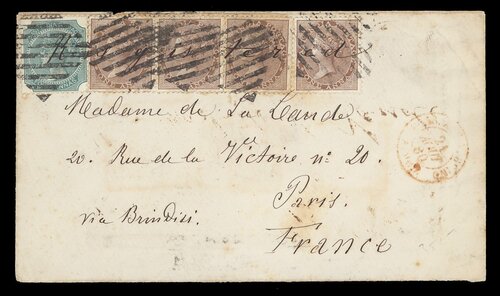 Registered
Madame de La Lande
20. Rue de la Victoire nº 20.
Paris.
via Brindisi.
France